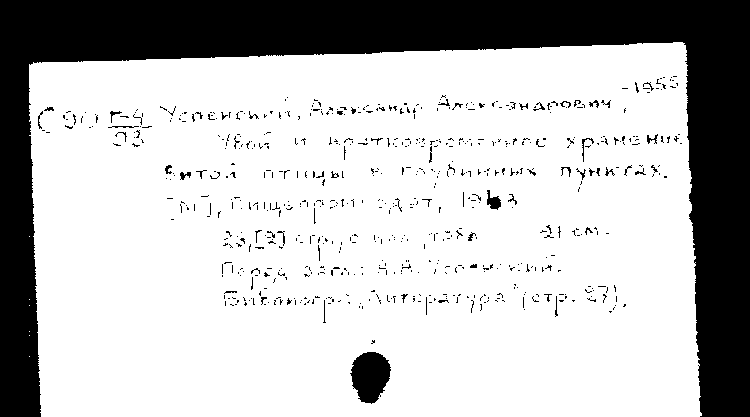 С 90 Г-4/93 Успенский, Александр Александрович, -1955
Убой и кратковременное хранение
битой птицы в глубинных пунктах.
[М], Пищепромиздат, 19 3
28, [2] стр., с илл., табл. 21 см.
Перед загл.: А.А. Успенский.
Библиогр.: „Литература" (стр. 27).